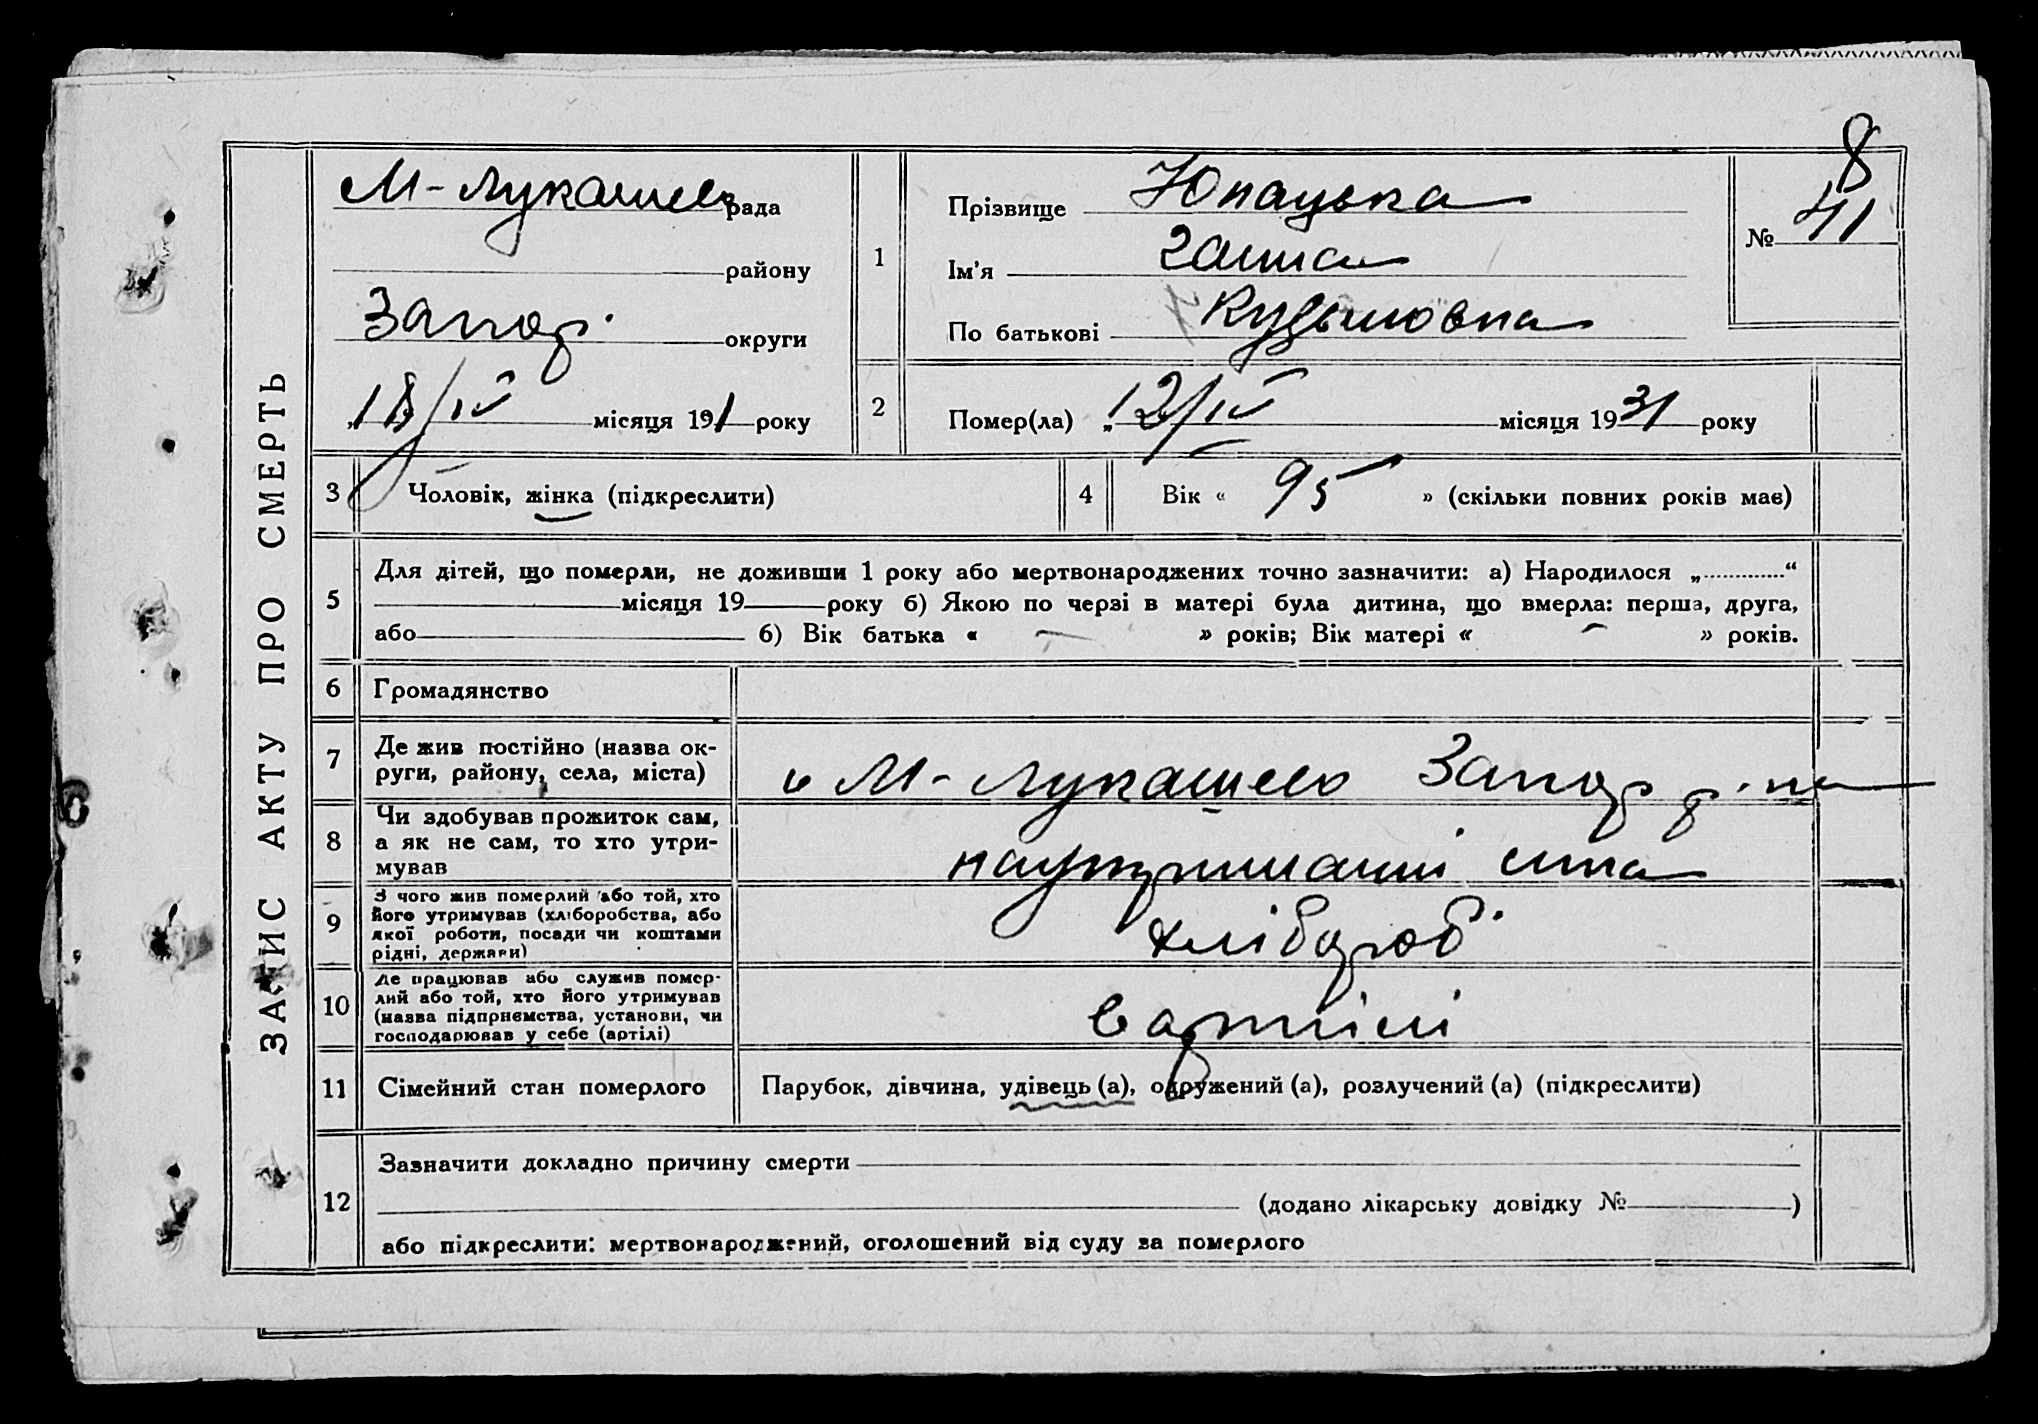 ЗАПИС АКТУ ПРО СМЕРТЬ
М-Лукашево рада
району
Запор. округи
„18/IV місяця 1931 року
1
Прізвище Юнацька
Ім’я Ганна
По батькові Кузьмовна
8
№ 41
2
Помер(ла) „12/IV місяця 1931 року
3
Чоловік, жінка (підкреслити)
4
Вік « 95 » (скільки повних років має)
5
Для дітей, що померли, не доживши 1 року або мертвонароджених точно зазначити: а) Народилося „.............“
місяця 19 року б) Якою по черзі в матері була дитина, що вмерла: перша, друга,
або б) Вік батька « — » років; Вік матері « — » років.
6
Громадянство
7
Де жив постійно (назва ок-
руги, району, села, міста)
с М-Лукашево Запор р-на
8
Чи здобував прожиток сам,
а як не сам, то хто утри-
мував
на утриманні сина
9
З чого жив померлий або той, хто
його утримував (хліборобства, або
якої роботи, посади чи коштами
рідні, держави)
хлібороб
10
Де працював або служив помер-
лий або той, хто його утримував
(назва підприємства, установи, чи
господарював у себе (артілі)
в артілі
11
Сімейний стан померлого
Парубок, дівчина, удівець (а), одружений (а), розлучений (а) (підкреслити)
12
Зазначити докладно причину смерти
(додано лікарську довідку № )
або підкреслити: мертвонароджений, оголошений від суду за померлого